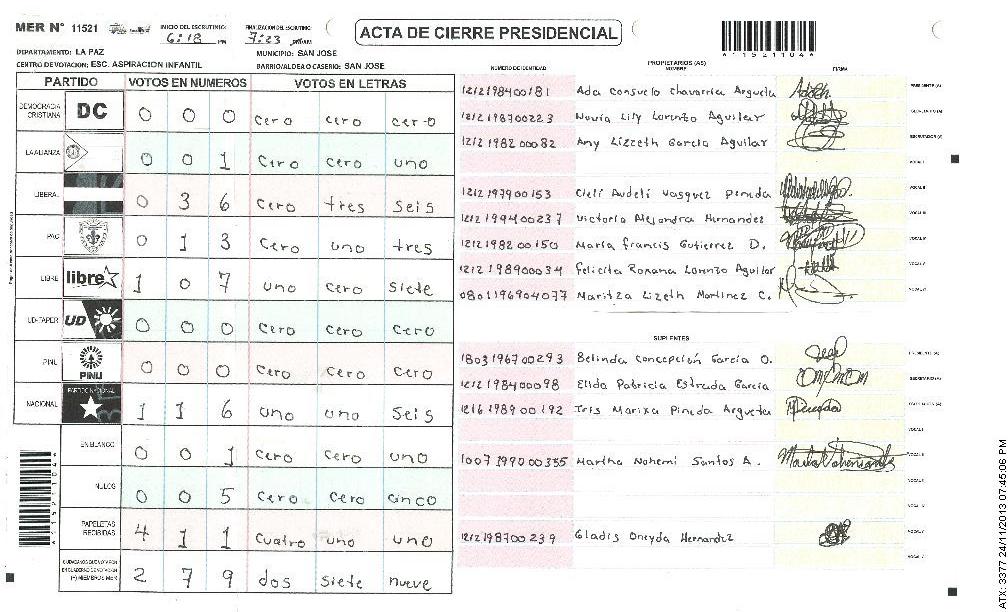 MER N° 11521 INICIO DEL ESCRUTINIO: 6:18 PM FINALIZACION DEL ESCRUTINIO: 7:23
ACTA DE CIERRE PRESIDENCIAL
A11521104A
DEPARTAMENTO: LA PAZ MUNICIPIO: SAN JOSE
CENTRO DE VOTACION: ESC. ASPIRACION INFANTIL BARRIO/ALDEA O CASERIO: SAN JOSE
PARTIDO VOTOS EN NUMEROS VOTOS EN LETRAS
DEMOCRACIA CRISTIANA DC 0 0 0 cero cero cero
LA ALIANZA 0 0 1 cero cero uno
LIBERAL 0 3 6 cero tres seis
PAC 0 1 3 cero uno tres
LIBRE libre 1 0 7 uno cero siete
UD-FAPER UD 0 0 0 cero cero cero
PINU PINU 0 0 0 cero cero cero
NACIONAL PARTIDO NACIONAL 1 1 6 uno uno seis
EN BLANCO 0 0 1 cero cero uno
NULOS 0 0 5 cero cero cinco
PAPELETAS RECIBIDAS 4 1 1 cuatro uno uno
2 7 9 dos siete nueve
PROPIETARIOS (AS)
NUMERO DE IDENTIDAD NOMBRE FIRMA
1212198400181 Ada Consuelo Chavarria Argueta
1212198700223 Novia Lily Lorenzo Aguilar
1212198200082 Any Lizzeth Garcia Aguilar
1212197900153 Cleli Audeli Vasquez Pineda
1212199400237 Victoria Alejandra Hernandez
1212198200150 Maria Francis Gutierrez D.
1212198900034 Felicita Roxana Lorenzo Aguilar
0801196904077 Maritza Lizeth Martinez C.
SUPLENTES
1803196700293 Belinda Concepción Garcia O.
1212198400098 Elida Patricia Estrada Garcia
1216198900192 Iris Marixa Pineda Argueta
1007199000355 Martha Nohemi Santos A.
1212198700239 Gladis Oneyda Hernandez
ATX: 3377 24/11/2013 07:45:06 PM